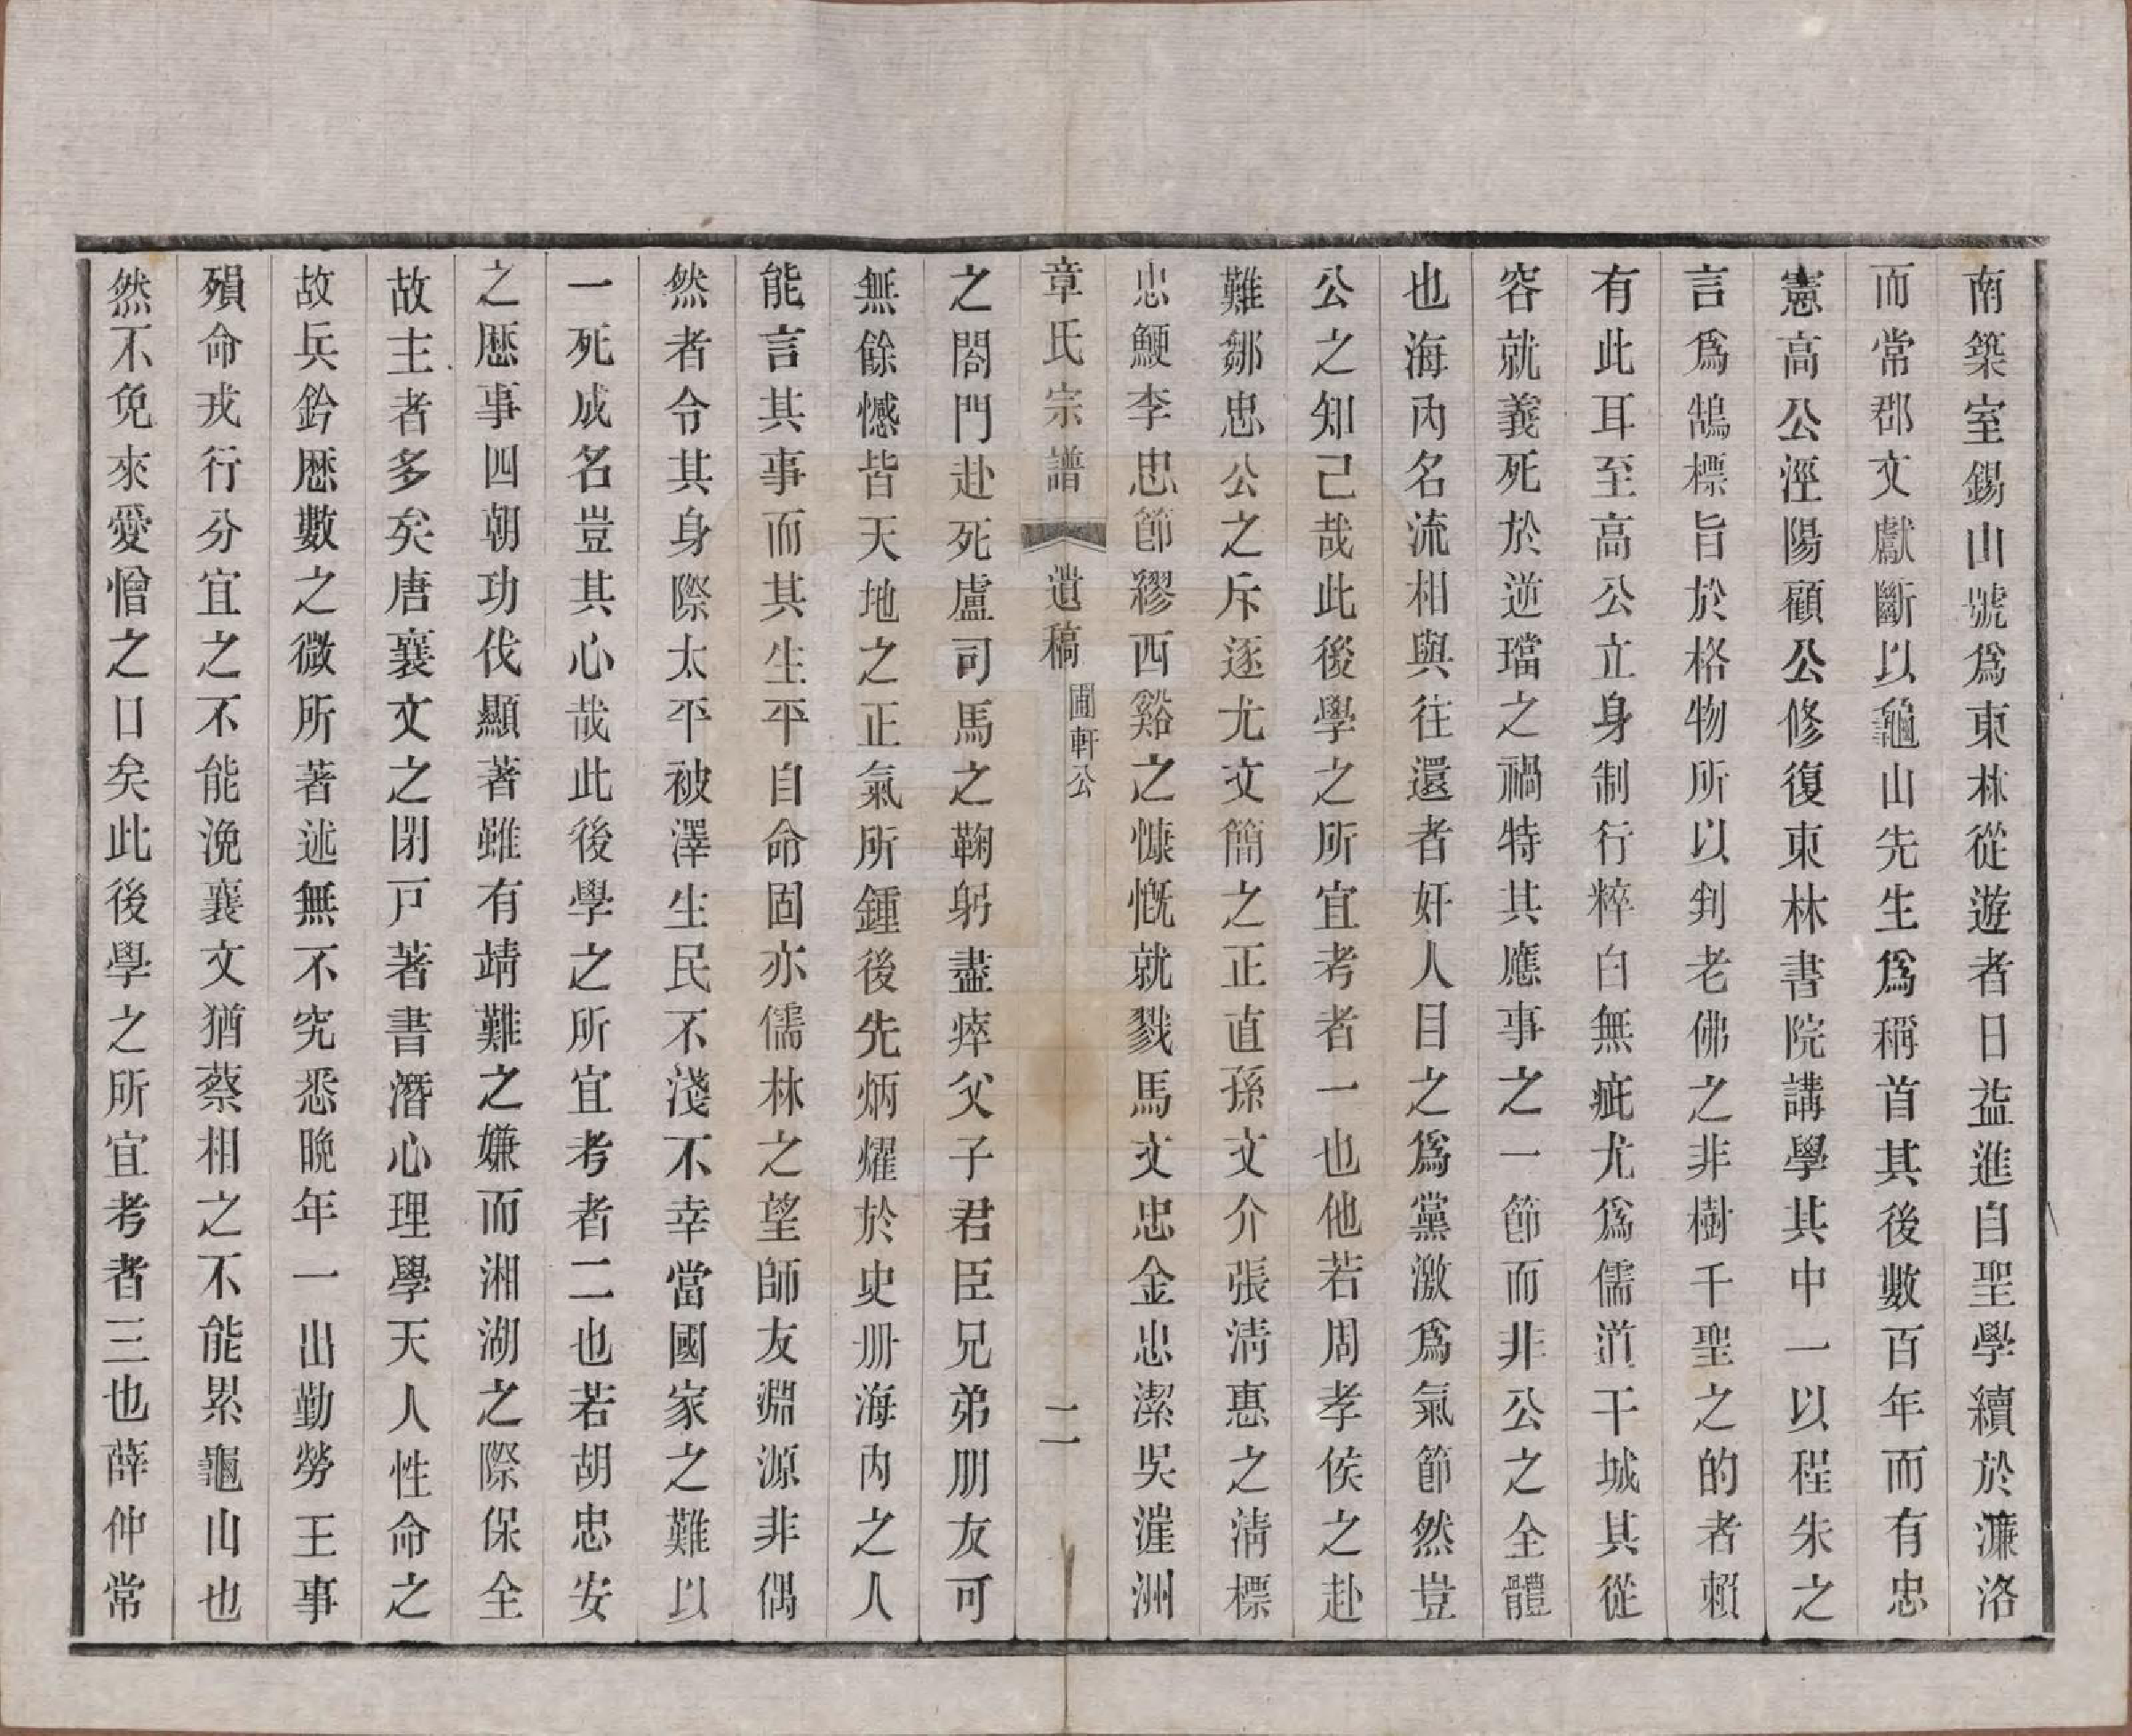 南築室錫山號爲東林從遊者日益進自聖學續於濂洛
而常郡文獻斷以龜山先生爲稱首其後數百年而有忠
憲高公涇陽顧公修復東林書院講學其中一以程朱之
言爲鵠標旨於格物所以剖老佛之非樹千聖之的者賴
有此耳至高公立身制行粹白無疵尤爲儒道干城其從
容就義死於逆璫之禍特其應事之一節而非公之全體
也海內名流相與往還者奸人目之爲黨激爲氣節然豈
公之知己哉此後學之所宜考者一也他若周孝侯之赴
難鄒忠公之斥逐尤文簡之正直孫文介張淸惠之淸標
忠鯁李忠節繆西谿之慷慨就戮馬文忠金忠潔吳漄洲
章氏宗譜 遺稿 圃軒公 二
之閤門赴死盧司馬之鞠躬盡瘁父子君臣兄弟朋友可
無餘憾皆天地之正氣所鍾後先炳燿於史册海內之人
能言其事而其生平自命固亦儒林之望師友淵源非偶
然者令其身際太平被澤生民不淺不幸當國家之難以
一死成名豈其心哉此後學之所宜考者二也若胡忠安
之歷事四朝功伐顯著雖有靖難之嫌而湘湖之際保全
故主者多矣唐襄文之閉戸著書潛心理學天人性命之
故兵鈐歷數之微所著述無不究悉晩年一出勤勞王事
殞命戎行分宜之不能浼襄文猶蔡相之不能累龜山也
然不免來愛憎之口矣此後學之所宜考者三也薛仲常